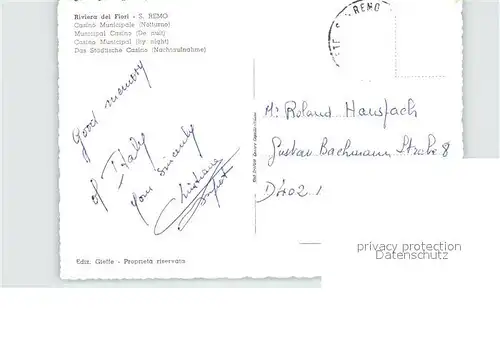 Riviera dei Fiori - S. REMO
Casinò Municipale (Notturno)
Municipal Casino (De nuit)
Casino Municipal (by night)
Das Städtische Casino (Nachtaufnahme)
REMO
Good memory
of Italy
your sincerely
Christiane
Mr Roland Hausfach
Gustav Bachmann Straße 8
D402 1
Ediz. Gieffe - Proprietà riservata
privacy protection
for AK-Ansichtskarten.de